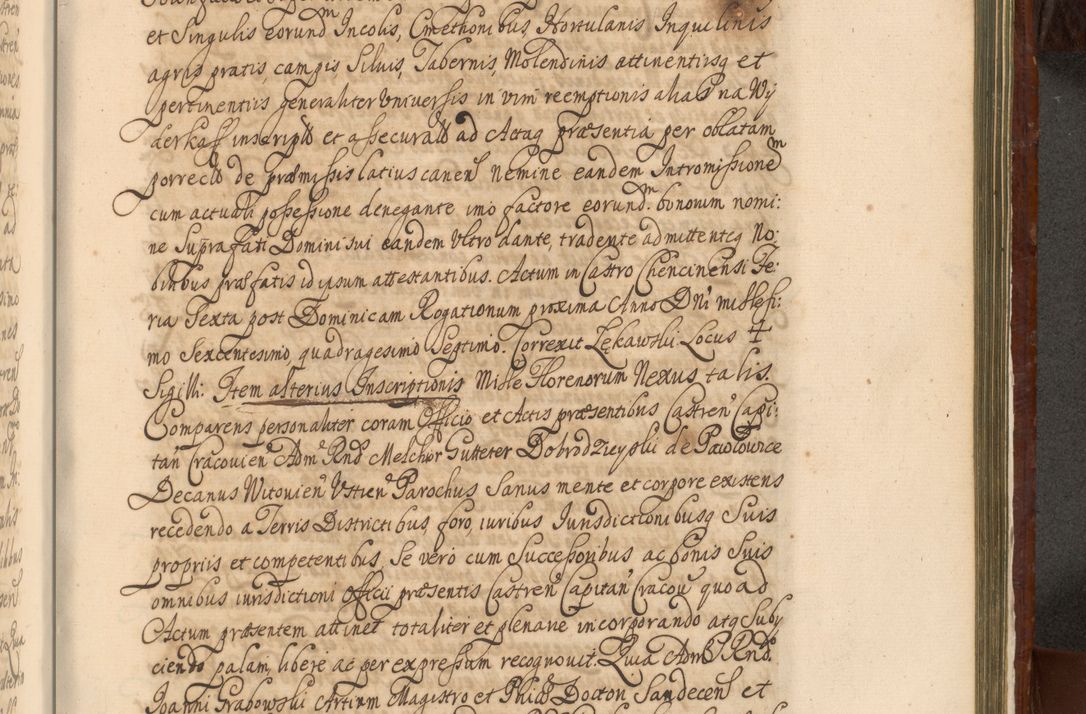 et Singulis eorundm Incolis, Cmethonibus, Hortulanis Inquilinis
agris pratis, campis Silvis, Tabernis, Molendinis attinentiisq et
pertinentiis generaliter Universis in vim reemptionis alias na Wy
derkaff inscriptis et assecuratis ad Actaq præsentia per oblatam
porrectis de præmissis latius canen Nemine eandem Intromissionem
cum actuali possessione denegante imo factore eorundm bonorum nomi:
ne Suprafati Domini sui eandem Ultro dante, tradente admittenteq No:
bilibus præfatis id ipsum attestantibus. Actum in Castro Chencinensi Fe:
ria Sexta post Dominicam Rogationum proxima Anno DNi millesi:
mo Sexcentesimo, quadragesimo Septimo. Correxit Lękawski Locus ‡
Sigilli: Item alterius Inscriptionis Mille Florenorum Nexus talis.
Comparens personaliter coram Officio et Actis præsentibus Castren Capi:
tan Cracovien Adm Rnd Melchor Gutteter Dobrodzieyski de Pawlowice
Decanus Witovien Ustien Parochus Sanus mente et corpore existens
recedendo a Terris Districtibus, foro, iuribus Iurisdictionibusq Suis
propriis et competentibus, Se vero cum Successoribus ac bonis Suis
omnibus iurisdictioni Officii præsentis Castren Capitan Cracov quo ad
Actum præsentem attinet totaliter et plenarie incorporando atq Suby
ciendo palam, libere ac per expressum recognovit. Quia Adm Rnd
Ioanni Grabowski Artium Magistro et Phiae Doctori Sandecens et